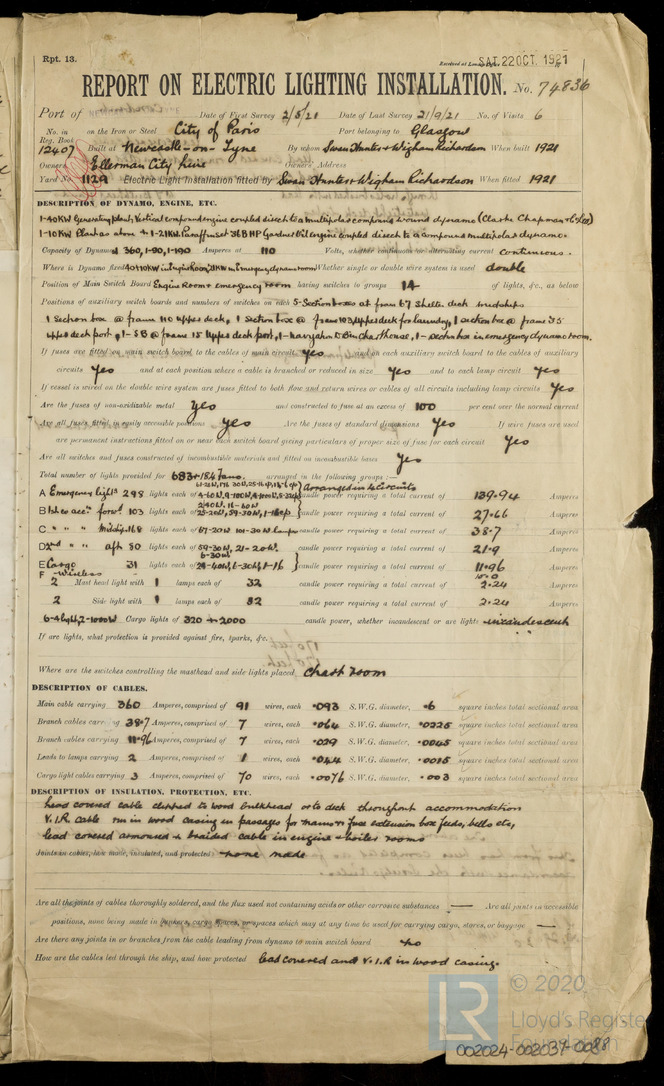 Rpt. 13.
Received at London Office SAT. 22 OCT. 1921
REPORT ON ELECTRIC LIGHTING INSTALLATION. No. 74836
Port of Date of First Survey 2/5/21 Date of Last Survey 21/9/21 No. of Visits 6
No. in Reg. Book on the Iron or Steel City of Paris Port belonging to Glasgow
Built at Newcastle-on-Tyne By whom Swan Hunter & Wigham Richardson When built 1921
Owners Ellerman City Line Owners' Address
Yard No. 1129 Electric Light Installation fitted by Swan Hunter & Wigham Richardson When fitted 1921
DESCRIPTION OF DYNAMO, ENGINE, ETC.
1-40KW Generating plant, Vertical compound engine coupled direct to a multipolar compound wound dynamo (Clarke Chapman & Co Ltd)
1-10KW Plant as above & 1-21KW. Paraffin set 36 BHP Gardner oil engine coupled direct to a compound multipolar dynamo.
Capacity of Dynamo 360, 1-90, 1-190 Amperes at 110 Volts, whether continuous or alternating current continuous.
Where is Dynamo fixed 40 & 10KW in Engine Room, 21KW in Emergency dynamo room Whether single or double wire system is used double
Position of Main Switch Board Engine Room & emergency room having switches to groups 14 of lights, &c., as below
Positions of auxiliary switch boards and numbers of switches on each 5-Section boxes at fram 67 Shelter deck midships
1 Section box @ frame 110 upper deck, 1 Section box @ fram 103 upper deck for laundry, 1 section box @ fram 35
upper deck port, 1-SB @ fram 15 Upper deck port, 1-navigation D.B in Charthouse, 1-section box in emergency dynamo room.
If fuses are fitted on main switch board to the cables of main circuit Yes and on each auxiliary switch board to the cables of auxiliary
circuits Yes and at each position where a cable is branched or reduced in size Yes and to each lamp circuit Yes
If vessel is wired on the double wire system are fuses fitted to both flow and return wires or cables of all circuits including lamp circuits Yes
Are the fuses of non-oxidizable metal Yes and constructed to fuse at an excess of 100 per cent over the normal current
Are all fuses fitted in easily accessible positions Yes Are the fuses of standard dimensions Yes If wire fuses are used
are permanent instructions fitted on or near each switch board giving particulars of proper size of fuse for each circuit Yes
Are all switches and fuses constructed of incombustible materials and fitted on incombustible bases Yes
Total number of lights provided for 683 + 184 fans. arranged in the following groups :— Arranged in 6 Circuits
A Emergency lights 295 lights each of candle power requiring a total current of 139.94 Amperes
B 1st accn forwd. 103 lights each of 25-30W, 59-30W, 1-16cp candle power requiring a total current of 27.66 Amperes
C " " Midship 168 lights each of 67-20W 101-30W lamps candle power requiring a total current of 38.7 Amperes
D 2nd " " aft 80 lights each of 59-30W, 21-20W. candle power requiring a total current of 21.9 Amperes
E Cargo 31 lights each of 24-40W, 6-30W, 1-16 candle power requiring a total current of 11.96 Amperes
F - Wireless 10.0
2 Mast head light with 1 lamps each of 32 candle power requiring a total current of 2.24 Amperes
2 Side light with 1 lamps each of 32 candle power requiring a total current of 2.24 Amperes
6-4 lights, 2-1000W Cargo lights of 320 & 2000 candle power, whether incandescent or arc lights incandescent
If arc lights, what protection is provided against fire, sparks, &c.
Where are the switches controlling the masthead and side lights placed chart room
DESCRIPTION OF CABLES.
Main cable carrying 360 Amperes, comprised of 91 wires, each .093 S.W.G. diameter, .6 square inches total sectional area
Branch cables carrying 38.7 Amperes, comprised of 7 wires, each .064 S.W.G. diameter, .0225 square inches total sectional area
Branch cables carrying 11.96 Amperes, comprised of 7 wires, each .029 S.W.G. diameter, .0045 square inches total sectional area
Leads to lamps carrying 2 Amperes, comprised of 1 wires, each .044 S.W.G. diameter, .0015 square inches total sectional area
Cargo light cables carrying 3 Amperes, comprised of 70 wires, each .0076 S.W.G. diameter, .003 square inches total sectional area
DESCRIPTION OF INSULATION, PROTECTION, ETC.
Lead covered cable clipped to wood bulkhead or to deck throughout accommodation
V.I.R cable run in wood casing in passages for mains & fuse extension box feeds, bells etc,
lead covered armoured & braided cable in engine & boiler rooms
Joints in cables, how made, insulated, and protected none made
Are all the joints of cables thoroughly soldered, and the flux used not containing acids or other corrosive substances — Are all joints in accessible
positions, none being made in bunkers, cargo spaces, or spaces which may at any time be used for carrying cargo, stores, or baggage —
Are there any joints in or branches from the cable leading from dynamo to main switch board no
How are the cables led through the ship, and how protected lead covered and V.I.R in wood casing.
© 2020
LR Lloyd's Register
Foundation
002024-002037-0088